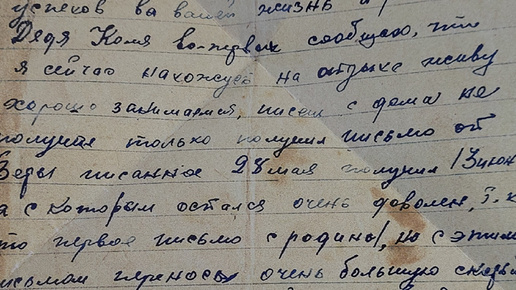 успехов в вашей жизнь и
Дядя Коля во-первых сообщаю, что
я сейчас нахожусь на отдыхе живу
хорошо занимаемся, писем с дома не
получил только получил письмо от
Веры писанное 28 мая получил 13 июн
а с которым остался очень доволен, т.к
то первое письмо с родины, но с этим
письмом переносы очень большую скорбь